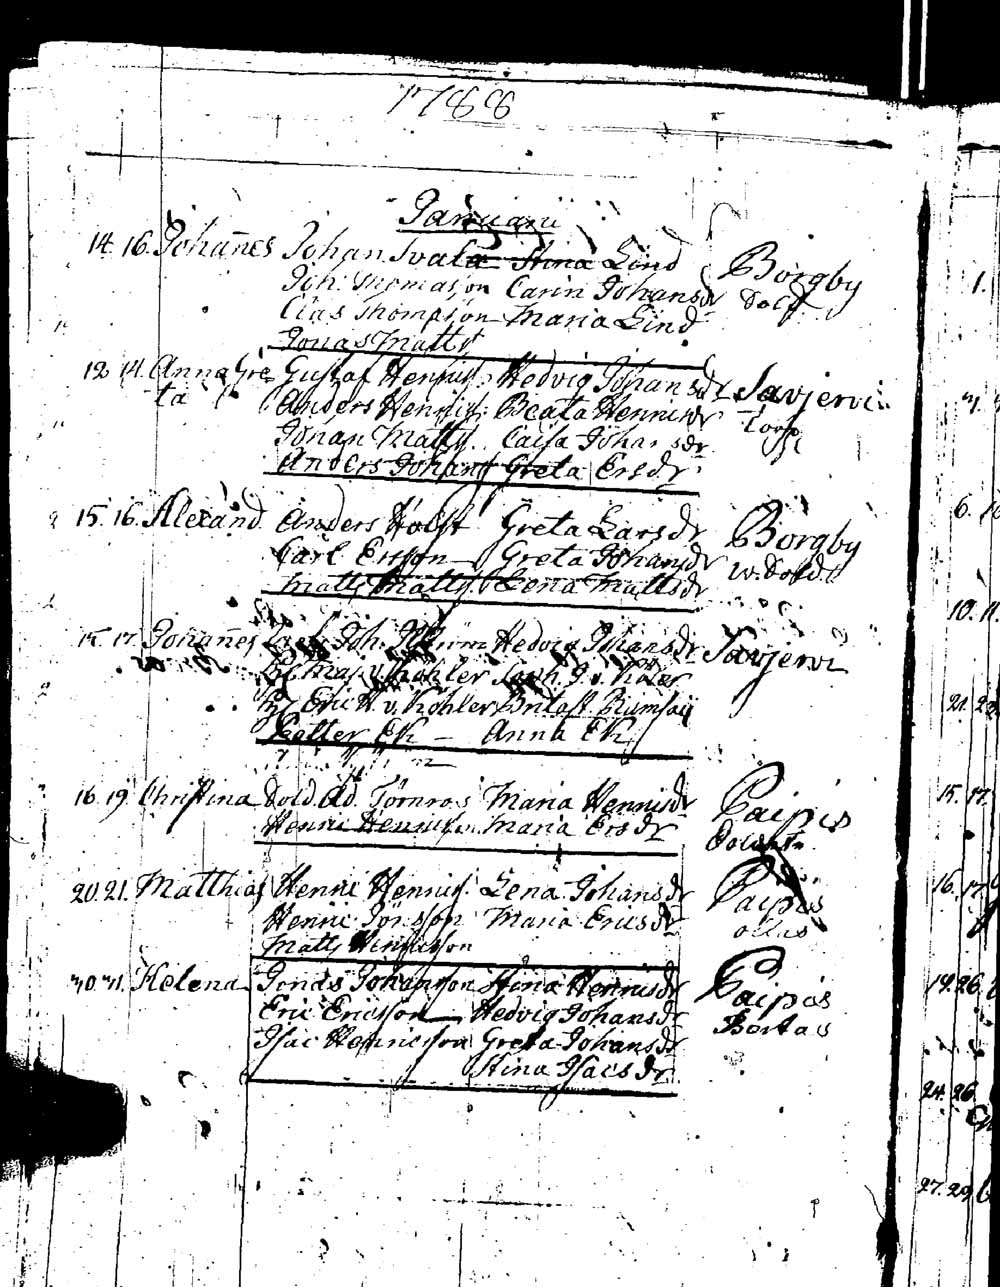 1788
Januarii
14. 16. Johannes Johan Svala Stina Lind Borgby
Joh: Thomasson Carin Johansdr Sold.
Clas Thompson Maria Lind
Jonas Matts
12 14. Anna Gre Gustaf Henris: Hedvig Johansdr Savjervi
ta Anders Henris: Beata Henrisdr Torp
Johan Matts. Caisa Johansdr
Anders Johans Greta Ersdr
15. 16. Alexand Anders Holst Greta Larsdr Borgby
Carl Ersson Greta Johansdr w. Sold.
Matts Matts Lena Mattsdr
15. 17. Johannes Joh. Hedvig Johansdr Savjervi
v. Köhler v. Köler
Eric v. Köhler Ramsaij
Petter Ek — Anna Ek
16. 19. Christina Sold Ad. Törnros Maria Hennisdr Paipis
Henric Hennisson Maria Ersdr
20. 21. Matthias Henric Hennis. Lena Johansdr Paipis
Henric Jörsson Maria Ericsdr
Matts Henricsson
30. 31. Helena Jonas Johansson Stina Hennisdr Paipis
Eric Ericsson Hedvig Johansdr Bertas
Isac Henricsson Greta Johansdr
Stina Isacsdr
1.
6.
10. 11
21. 22
15. 17.
16. 17.
19. 26.
24. 26.
27. 29.